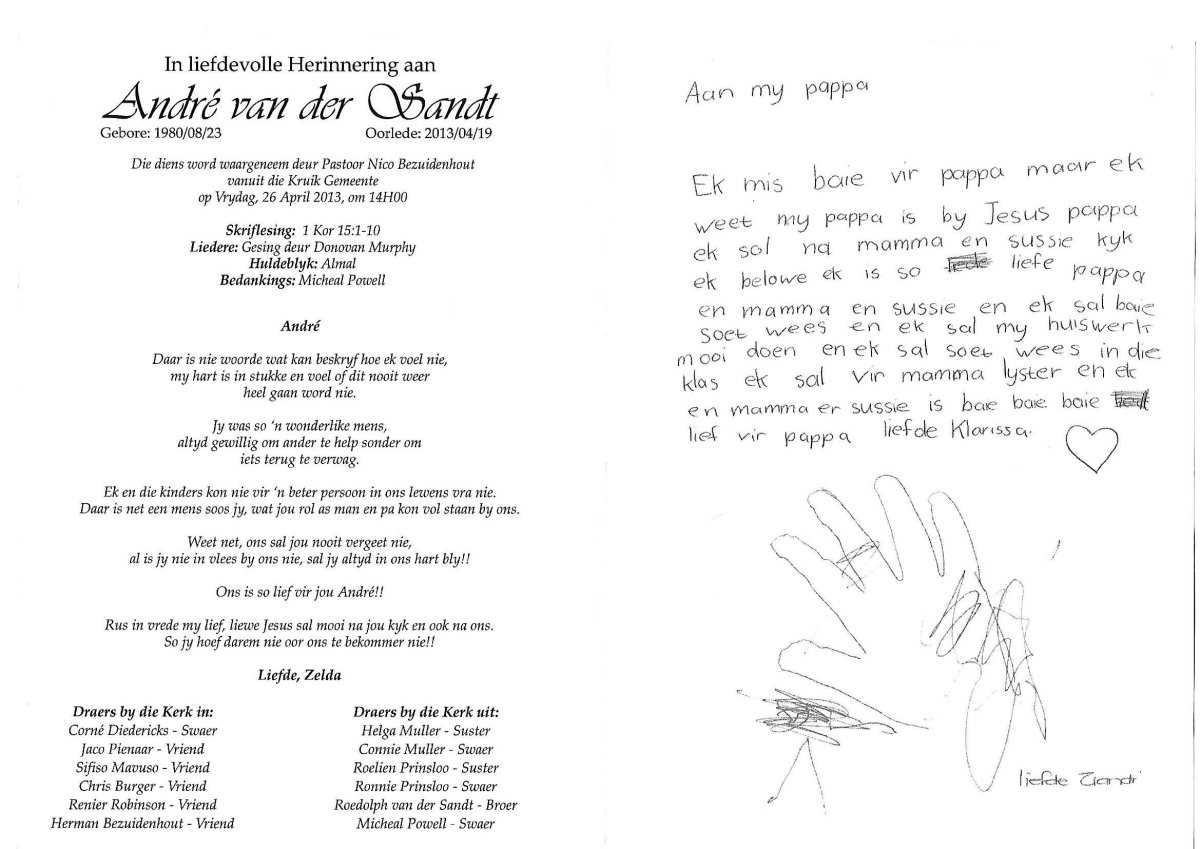 In liefdevolle Herinnering aan
André van der Sandt
Gebore: 1980/08/23 Oorlede: 2013/04/19
Die diens word waargeneem deur Pastoor Nico Bezuidenhout
vanuit die Kruik Gemeente
op Vrydag, 26 April 2013, om 14H00
Skriflesing: 1 Kor 15:1-10
Liedere: Gesing deur Donovan Murphy
Huldeblyk: Almal
Bedankings: Micheal Powell
André
Daar is nie woorde wat kan beskryf hoe ek voel nie,
my hart is in stukke en voel of dit nooit weer
heel gaan word nie.
Jy was so 'n wonderlike mens,
altyd gewillig om ander te help sonder om
iets terug te verwag.
Ek en die kinders kon nie vir 'n beter persoon in ons lewens vra nie.
Daar is net een mens soos jy, wat jou rol as man en pa kon vol staan by ons.
Weet net, ons sal jou nooit vergeet nie,
al is jy nie in vlees by ons nie, sal jy altyd in ons hart bly!!
Ons is so lief vir jou André!!
Rus in vrede my lief, liewe Jesus sal mooi na jou kyk en ook na ons.
So jy hoef darem nie oor ons te bekommer nie!!
Liefde, Zelda
Draers by die Kerk in:
Corné Diedericks - Swaer
Jaco Pienaar - Vriend
Sifiso Mavuso - Vriend
Chris Burger - Vriend
Renier Robinson - Vriend
Herman Bezuidenhout - Vriend
Draers by die Kerk uit:
Helga Muller - Suster
Connie Muller - Swaer
Roelien Prinsloo - Suster
Ronnie Prinsloo - Swaer
Roedolph van der Sandt - Broer
Micheal Powell - Swaer
Aan my pappa
Ek mis baie vir pappa maar ek
weet my pappa is by Jesus pappa
ek sol na mamma en sussie kyk
ek belowe ek is so liefe pappa
en mamma en sussie en ek sal baie
soet wees en ek sal my huiswerk
mooi doen en ek sal soet wees in die
klas ek sal vir mamma lyster en ek
en mamma er sussie is baie baie baie
lief vir pappa liefde Klarissa.
liefde Ziandi